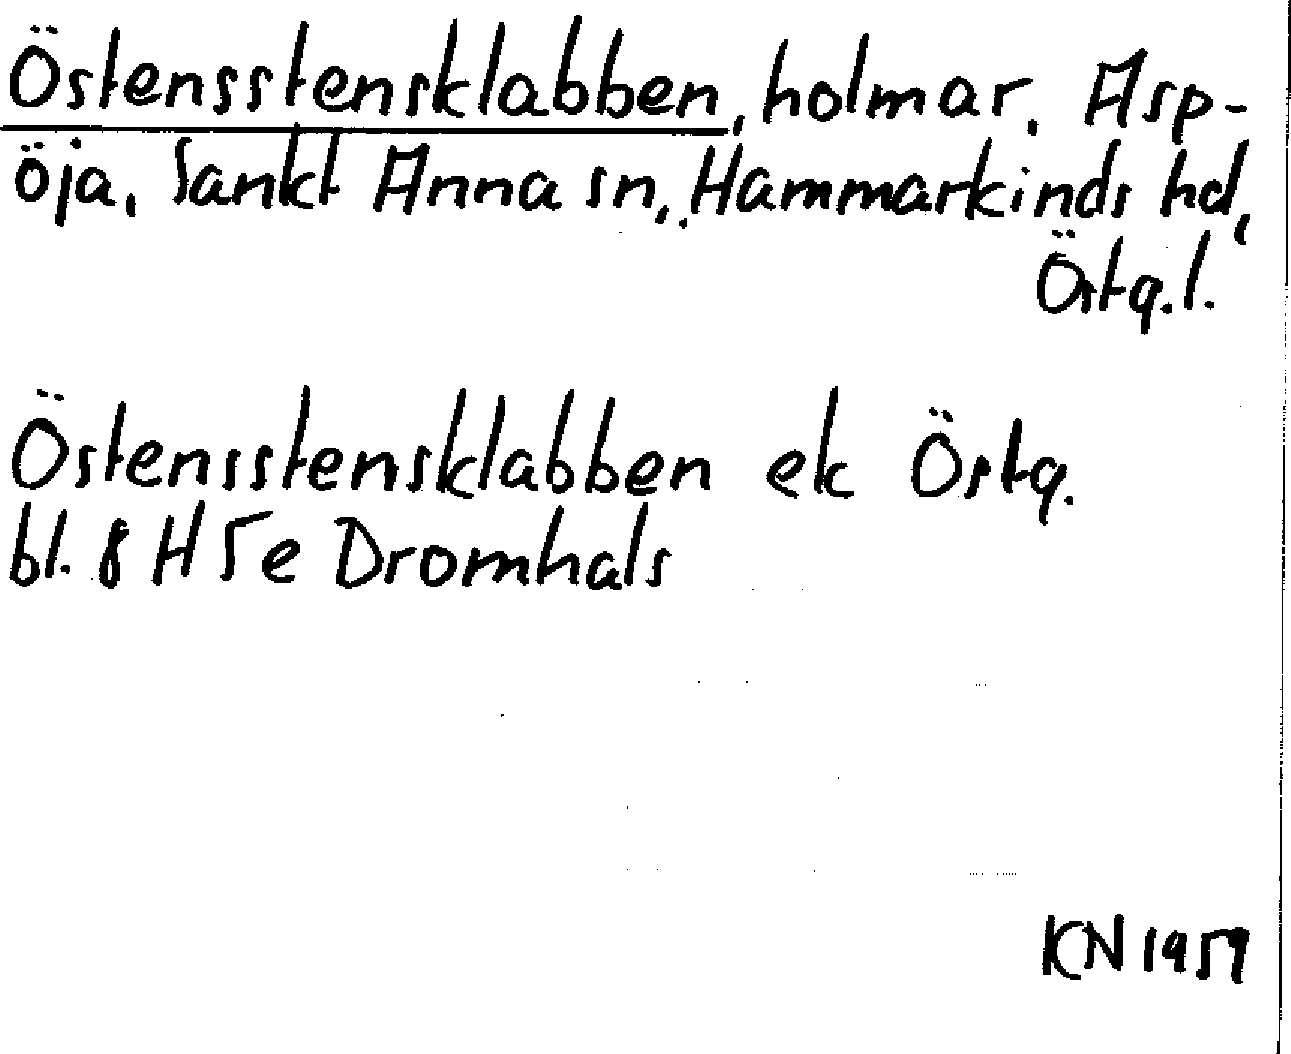 Östensstensklabben, holmar, Asp-
öja, Sankt Anna sn, Hammarkinds hd,
Östg.l.
Östensstensklabben ek Östg.
bl. 8 H 5 e Dromhals
KN 1959